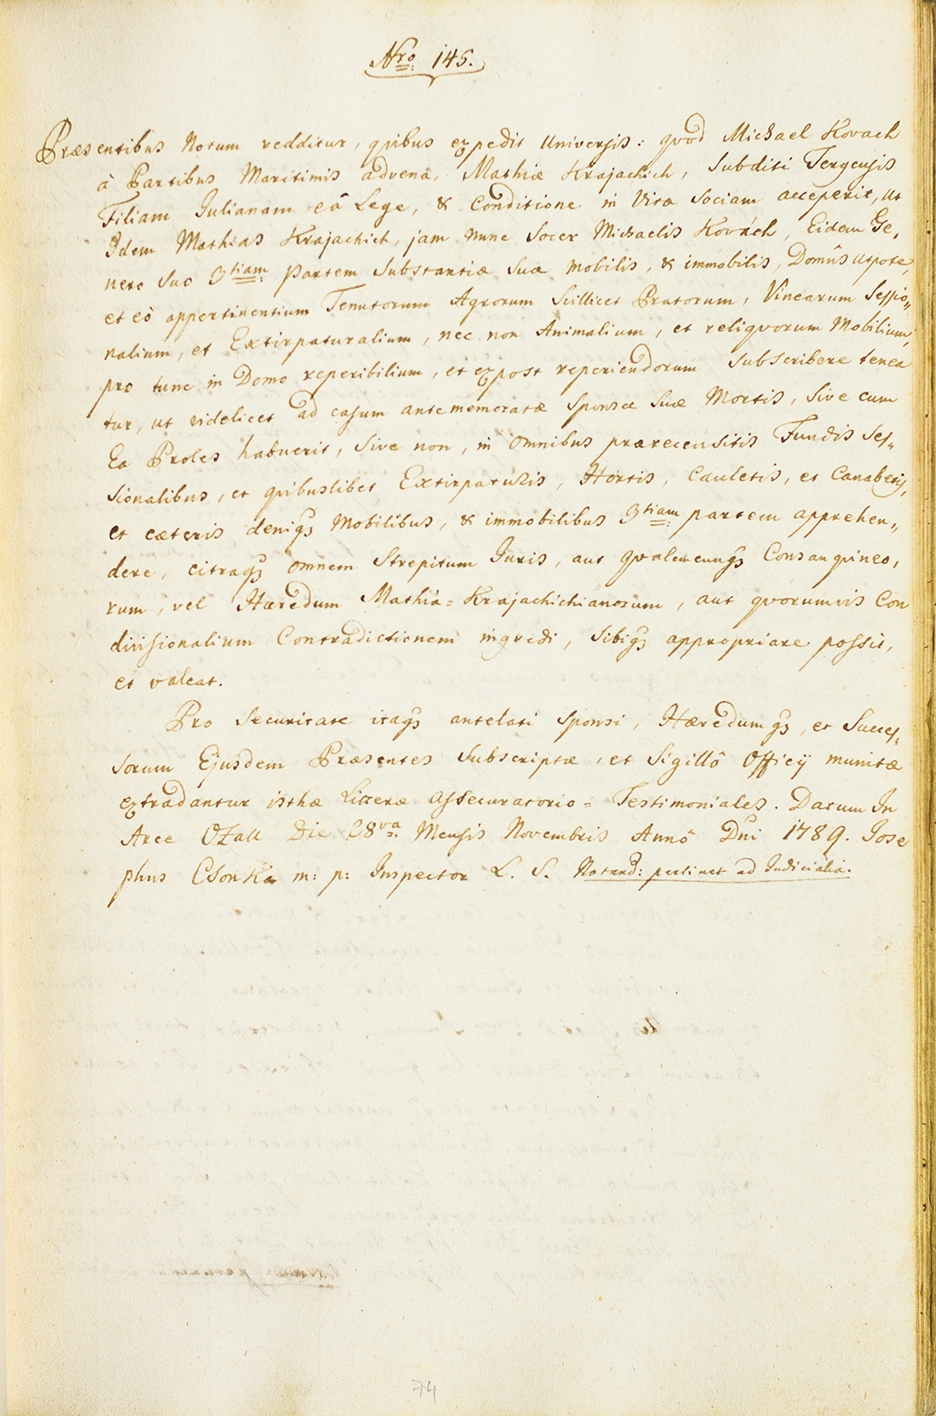 Nro 145.
Præsentibus Notum redditur, quibus expedit Universis: qvod Michael Kovach
à Partibus Maritimis advena, Mathiæ Krajachich, Subditi Tergensis
Filiam Julianam eâ Lege, & Conditione in Vitæ Sociam acceperit, ut
Idem Mathias Krajachich, jam nunc Socer Michaelis Kovách, Eidem Ge,
nero Suo 3tiam partem Substantiæ Suæ mobilis, & immobilis, Domûs utpote,
et eò appertinentium Tenutorum Agrorum Scillicet Pratorum, Vinearum Sessio,,
nalium, et Extirpaturalium, nec non Animalium, et reliqvorum Mobilium,
pro tunc in Domo reperibilium, et expost reperiendorum Subscribere tenea
tur, ut videlicet ad casum antememoratæ Sponsæ Suæ Mortis, Sive cum
Ea Proles habuerit, Sive non, in omnibus præreсensitis Fundis Ses,,
sionalibus, et quibuslibet Extirpaturis, Hortis, Cauletis, et Canabetis,
et cæteris deniqз Mobilibus, & immobilibus 3tiam partem apprehen,,
dere, citraqз omnem Strepitum Juris, aut qvalemcunqз Consanguineo,
rum, vel Hæredum Mathia = Krajachichianorum, aut qvorumvis Con
divisionalium Contradictionem ingredi, Sibiqз appropriare possit,
et valeat.
Pro Securitate itaqз antelati Sponsi, Hæredumqз, et Succes,,
sorum Ejusdem Præsentes Subscriptæ, et Sigillô Officÿ munitæ
extradantur isthæ Litteræ Assecuratorio = Testimoniales. Datum In
Arce Ozall Die 28va Mensis Novembris Annô Dni 1789. Jose
phus Csonka m: p: Inspector L. S. Notand: pertinet ad Judicialia.
74